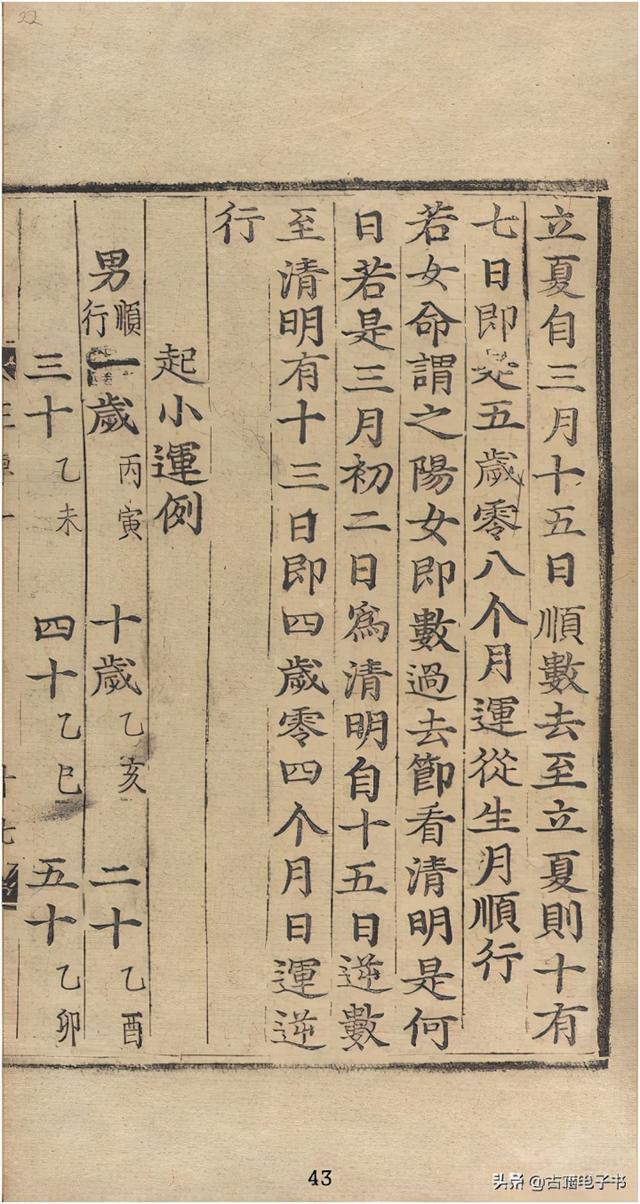 22
立夏自三月十五日順數去至立夏則十有
七日即是五歲零八个月運從生月順行
若女命謂之陽女即數過去節看清明是何
日若是三月初二日為清明自十五日逆數
至清明有十三日即四歲零四个月日運逆
行
起小運例
男順行一歲丙寅 十歲乙亥 二十乙酉
三十乙未 四十乙巳 五十乙卯
十七
43
头条 @古籍电子书